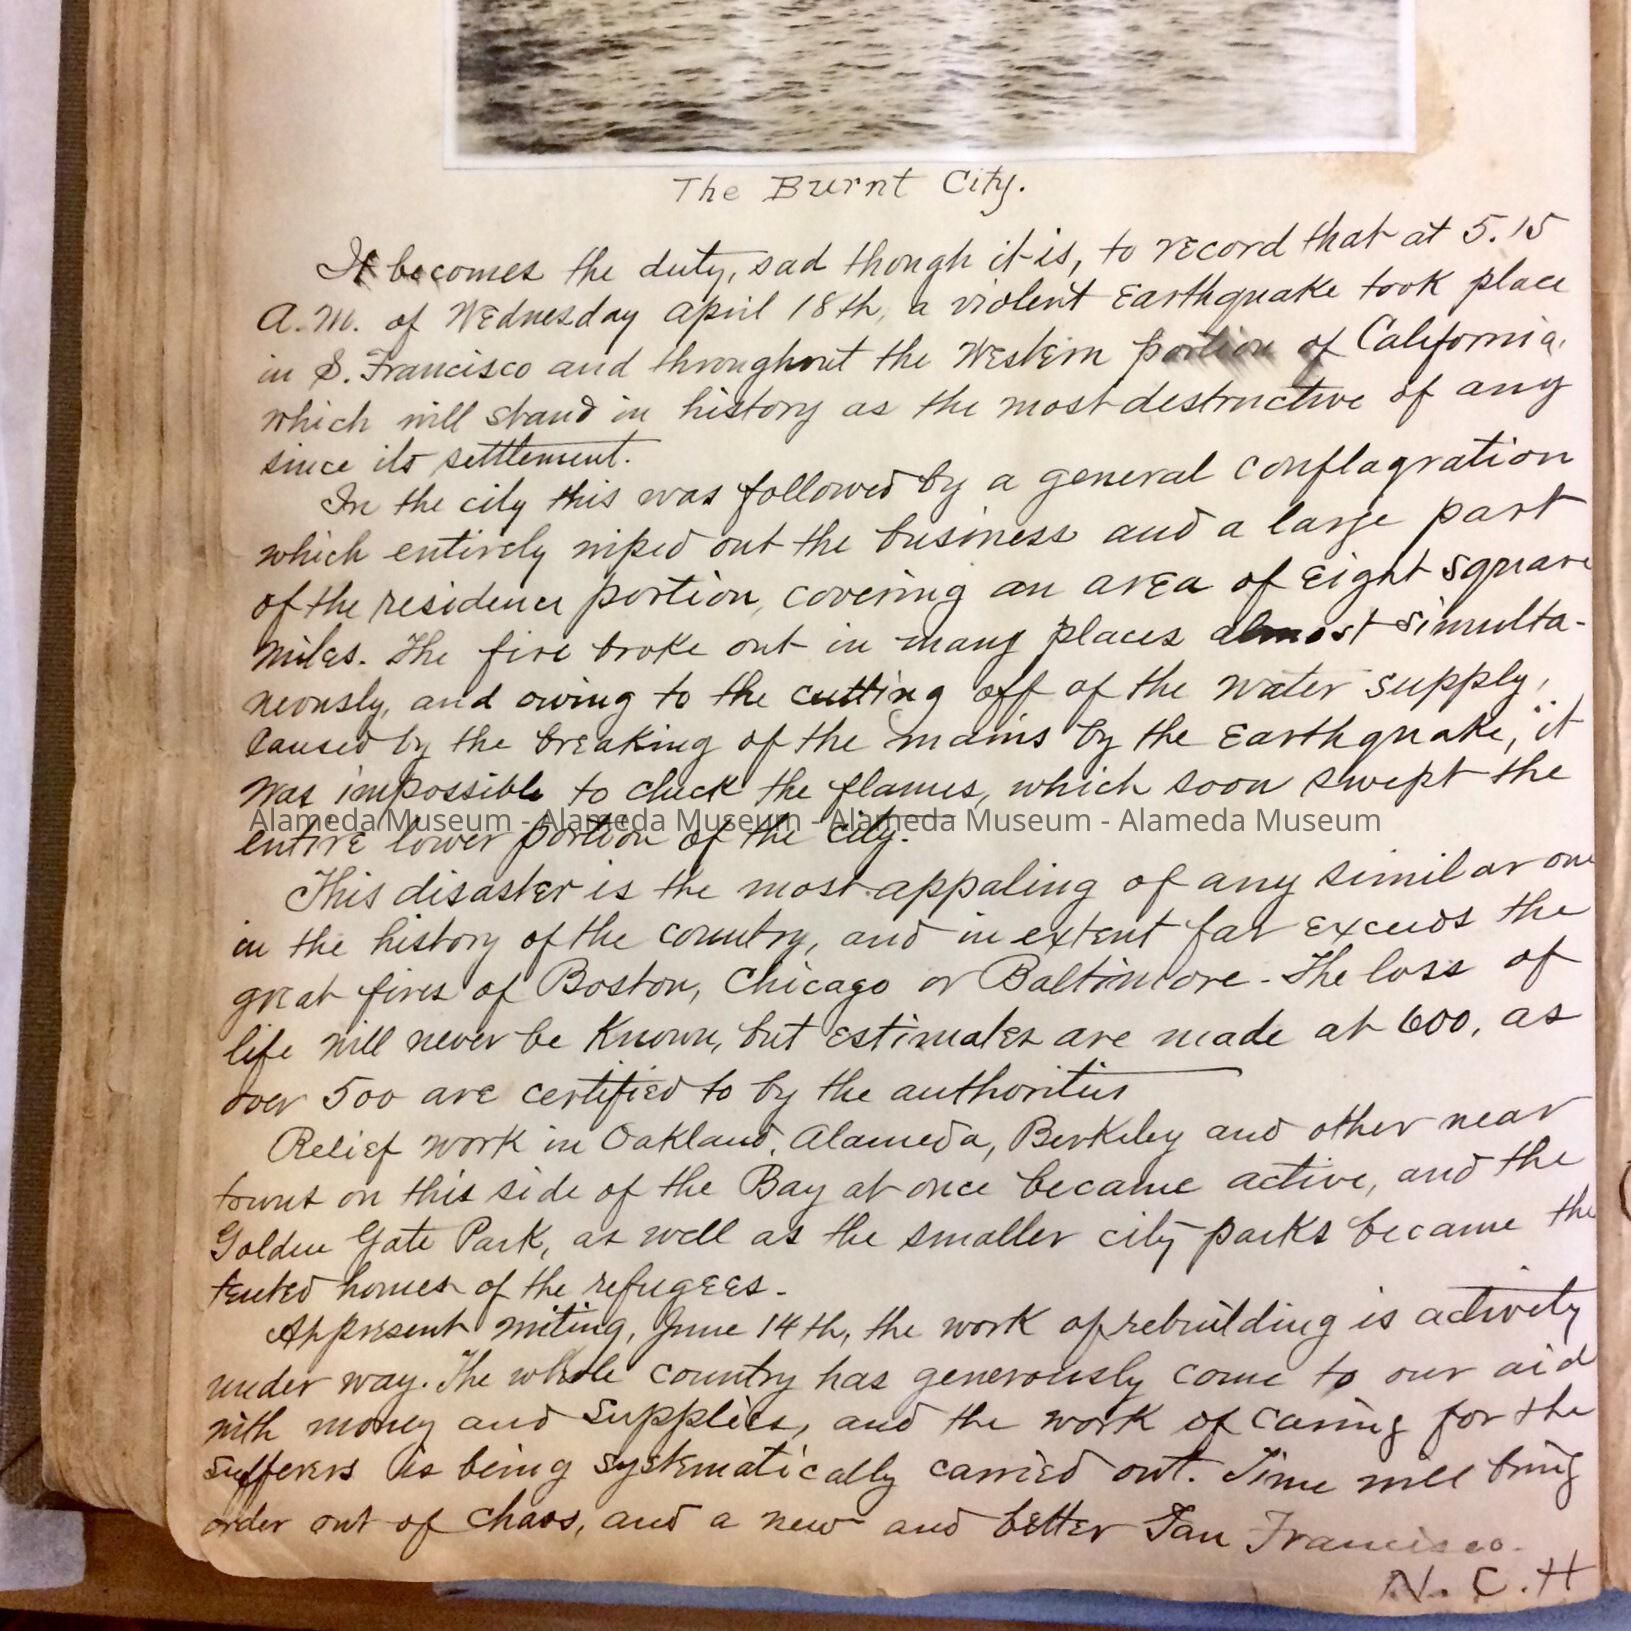 The Burnt City.
It becomes the duty, sad though it is, to record that at 5.15
A.M. of Wednesday April 18th, a violent Earthquake took place
in S. Francisco and throughout the Western portion of California,
which will stand in history as the most destructive of any
since its settlement.
In the city this was followed by a general conflagration
which entirely wiped out the business and a large part
of the residence portion, covering an area of Eight square
miles. The fire broke out in many places almost simulta-
neously, and owing to the cutting off of the water supply,
caused by the breaking of the mains by the Earthquake, it
was impossible to check the flames, which soon swept the
Alameda Museum - Alameda Museum - Alameda Museum - Alameda Museum
entire lower portion of the city.
This disaster is the most appaling of any similar one
in the history of the country, and in extent far exceeds the
great fires of Boston, Chicago or Baltimore. The loss of
life will never be known, but estimates are made at 600, as
over 500 are certified to by the authorities
Relief work in Oakland, Alameda, Berkeley and other near
towns on this side of the Bay at once became active, and the
Golden Gate Park, as well as the smaller city parks became the
tented homes of the refugees.
At present writing, June 14th, the work of rebuilding is activity
under way. The whole country has generously come to our aid
with money and supplies, and the work of caring for the
sufferers is being systematically carried out. Time will bring
order out of chaos, and a new and better San Francisco.
N. C. H